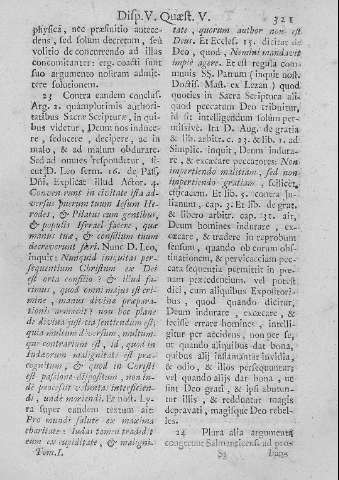 Disp. V. Quæst. V.
321
physicâ, nec præsuposito antece-
dens, sed solum decretum, seù
volitio de concurrendo ad illas
concomitanter: erg. coacti sunt
suo argumento nostram admit-
tere solutionem.
23 Contra eandem conclus.
Arg. 2. quamplurimis authori-
tatibus Sacræ Scripturæ, in qui-
bus videtur, Deum nos induce-
re, seducere, decipere, ac in
malo, & ad malum obdurare.
Sed ad omnes respondetur, si-
cut D. Leo serm. 16. de Pass.
Dñi. Explicat illud Actor. 4.
Convenerunt in civitate ista ad-
versus puerum tuum Iesum He-
rodes, & Pilatus cum gentibus,
& populis Israel facere, quæ
manus tua, & consilium tuum
decreverunt fieri. Nunc D. Leo,
inquit: Numquid iniquitas per-
sequentium Christum ex Dei
est orta consilio? & illud fa-
cinus, quod omni majus est cri-
mine, manus divinæ præpara-
tionis armavit? non hoc plane
de divina justitia sentiendum est;
quia multum diversum, multum-
que contrarium est, id, quod in
Iudæorum malignitate est præ-
cognitum, & quod in Christi
est passione dispositum, non in-
de processit voluntas interficien-
di, unde moriendi. Et nost. Ly-
ra super eandem textum ait:
Pro mundi salute ex maxima
charitate: Iudas tamen tradidit
eum ex cupiditate, & maligni-
Tom. I.
tate, quorum author non est
Deus. Et Eccles. 15. dicitur de
Deo, quod, Nemini mandavit
impiè agere. Et est regula com-
munis SS. Patrum (inquit nost.
Doctiss. Matt. ex Lezan) quod
quoties in Sacra Scriptura ali-
quod peccatum Deo tribuitur,
id sit intelligendum solum per-
missivè. Ita D. Aug. de gratia
& lib. arbitr. c. 23. & lib. 1. ad
Simplic. inquit, Deum indura-
re, & excæcare peccatores: Non
impartiendo malitiam, sed non
impartiendo gratiam, scilicet,
efficacem. Et lib. 5. contra Iu-
lianum, cap. 3. Et lib. de grat.
& libero arbitr. cap. 21. ait,
Deum homines indurare, ex-
cæcare, & tradere in reprobum
sensum, quando ob eorum obsti-
nationem, & pervicacciam pec-
cata sequentia permittit in pœ-
nam præcedentium. vel potest
dici, cum aliquibus Expositori-
bus, quod quando dicitur,
Deum indurare, excæcare, &
fecisse errare homines, intelli-
gitur per accidens, non per se,
ut quando aliquibus dat bona,
quibus alij inflamantur invidia,
& odio, & illos persequuntur;
vel quando alijs dat bona, ut
sint Deo grati, & ipsi abutun-
tur illis, & redduntur magis
depravati, magisque Deo rebel-
les.
24 Plura alia argumenta
congerunt Salmanticens. ad pros